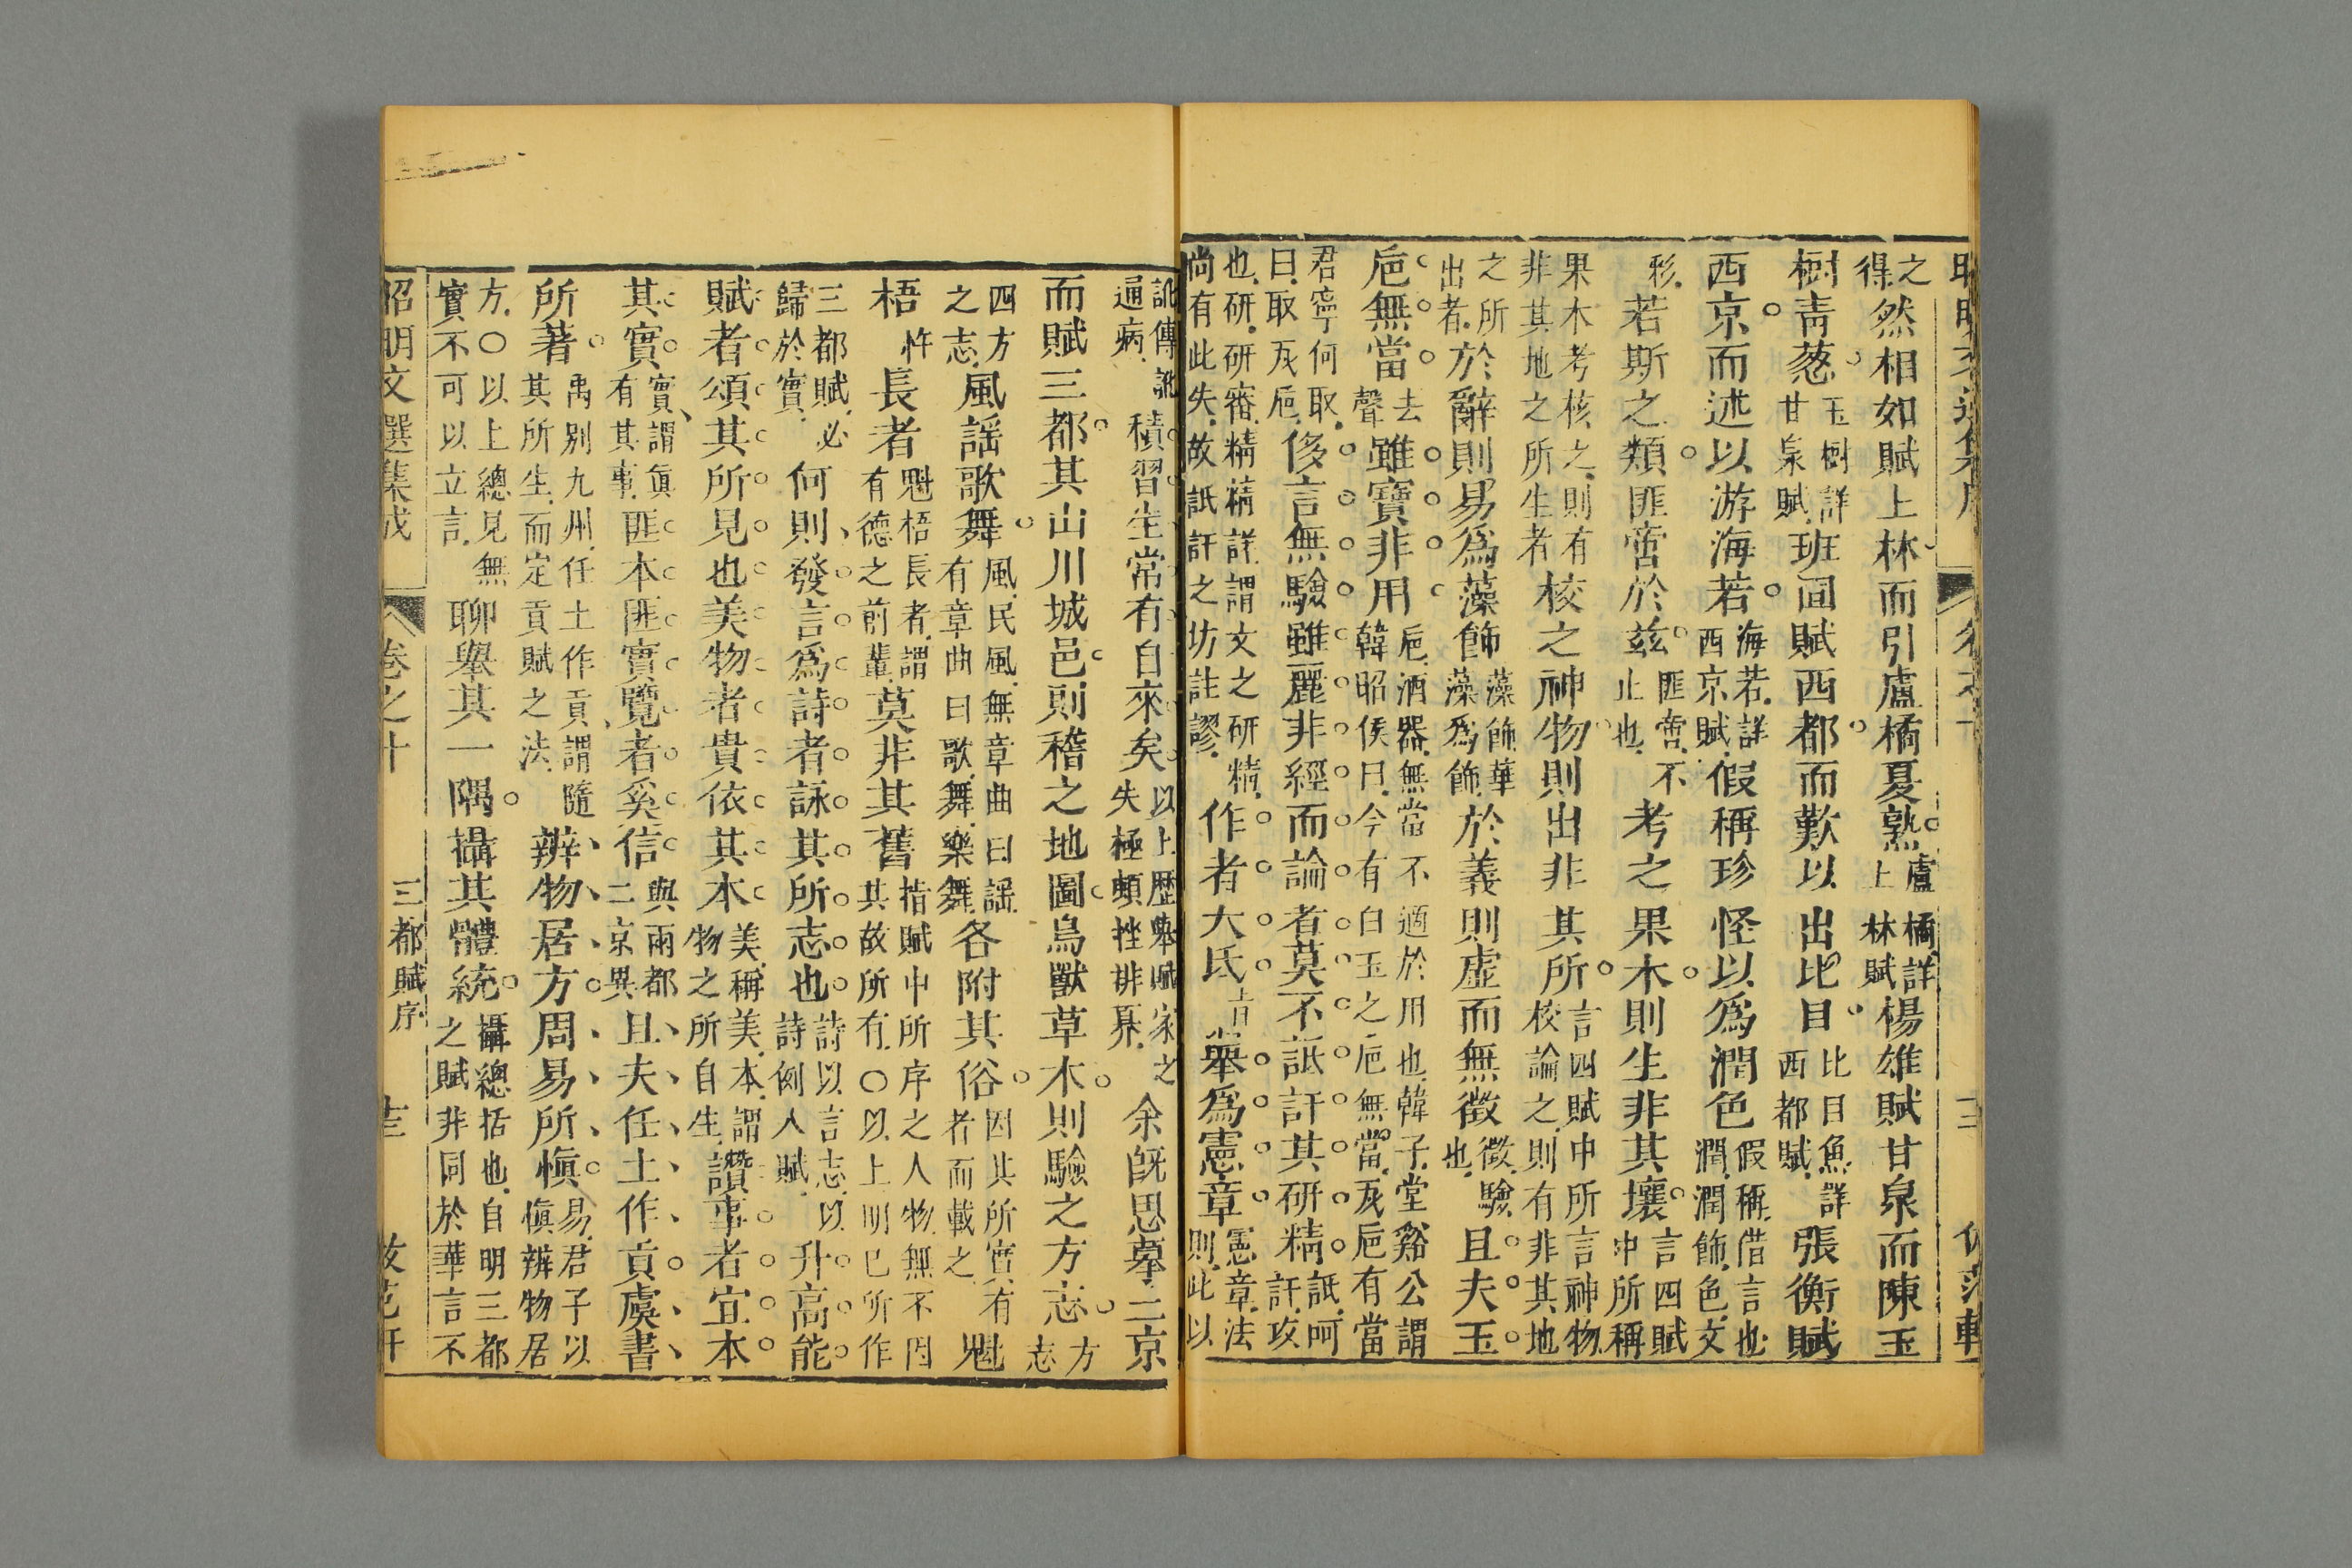 之得然相如賦上林而引盧橘夏熟盧橘詳上林賦楊雄賦甘泉而陳玉
樹青葱玉樹詳甘泉賦班固賦西都而歎以出比目比目魚詳西都賦張衡賦
西京而述以游海若海若詳西京賦假稱珍怪以爲潤色假稱借言也潤潤飾色文
彩若斯之類匪啻於茲匪啻不止也考之果木則生非其壤言四賦中所稱
果木考核之則有非其地之所生者校之神物則出非其所言四賦中所言神物校論之則有非其地
之所出者於辭則易爲藻飾藻飾華藻爲飾於義則虛而無徵徵驗也且夫玉
巵無當去聲雖寶非用巵酒器無當不適於用也韓子堂谿公謂韓昭侯曰今有白玉之巵無當瓦巵有當
君寧何取曰取瓦巵侈言無驗雖麗非經而論者莫不詆訐其研精詆呵訐攻
也研研審精精詳謂文之研精尚有此失故詆訐之坊註謬作者大氐音旨舉爲憲章憲章法則此以
訛傳訛通病積習生常有自來矣以上歷舉賦家之失極頓挫排奡余旣思摹二京
而賦三都其山川城邑則稽之地圖鳥獸草木則驗之方志方志
四方之志風謡歌舞風民風無章曲曰謡有章曲曰歌舞樂舞各附其俗因其所實有者而載之魁
梧忤長者魁梧長者謂有德之前輩莫非其舊指賦中所序之人物無不因其故所有〇以上明已所作
三都賦必歸於實何則發言爲詩者詠其所志也詩以言志以詩例人賦升高能
賦者頌其所見也美物者貴依其本美稱美本謂物之所自生讚事者宜本
其實實謂眞有其事匪本匪實覽者奚信與兩都二京異且夫任土作貢虞書
所著禹別九州任土作貢謂隨其所生而定貢賦之法辨物居方周易所愼易君子以愼辨物居
方〇以上總見無實不可以立言聊舉其一隅攝其體統攝總括也自明三都之賦非同於華言不
昭明文選集成 卷之十 三都賦序